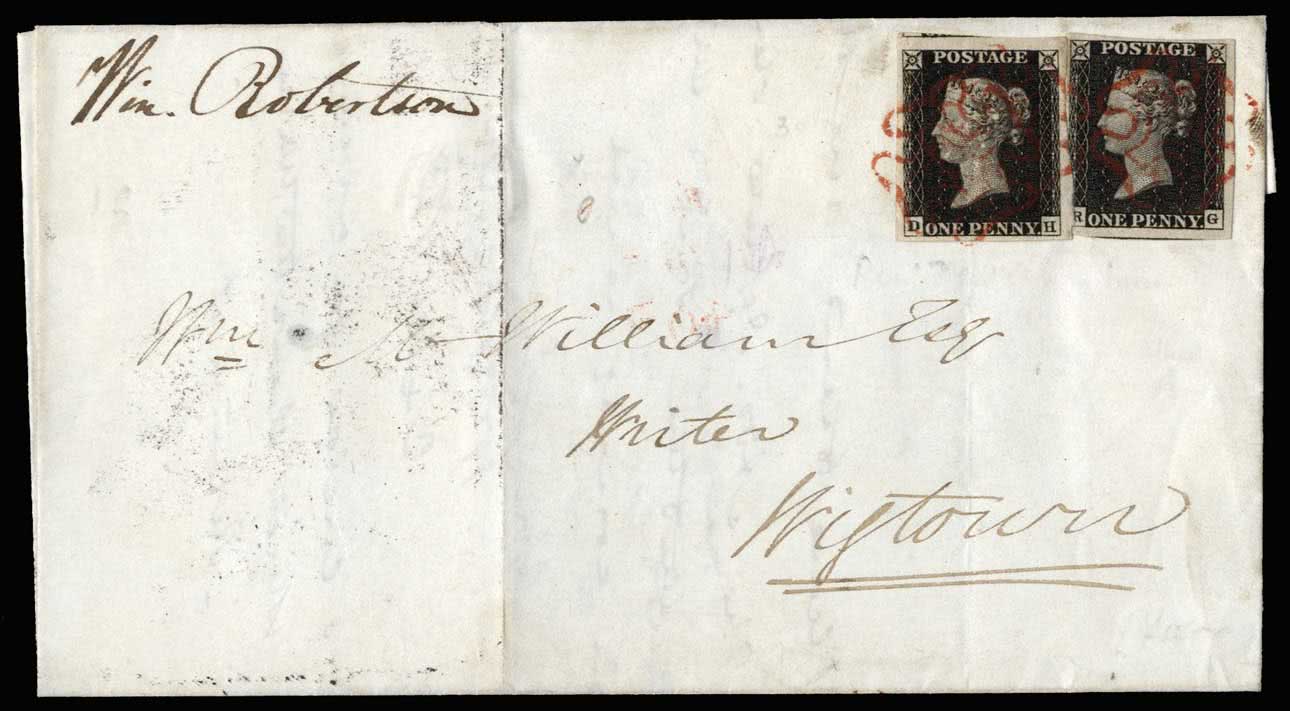 Wm. Robertson
POSTAGE
D ONE PENNY. H
POSTAGE
R ONE PENNY. G
Wm McWilliam Esq
Writer
Wigtown